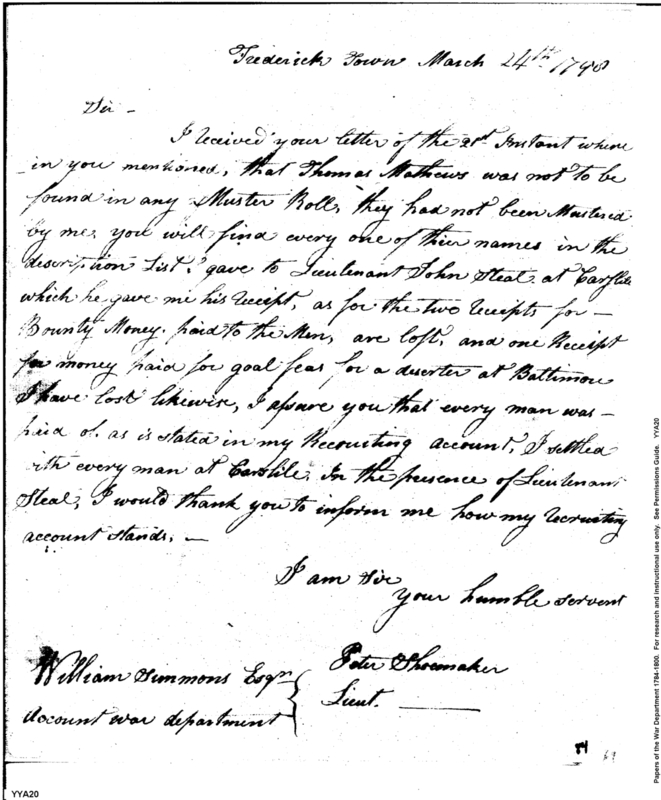 Frederick Town March 24th 1798
Sir -
I received your letter of the 21st Instant where
in you mentioned, that Thomas Mathews was not to be
found in any Muster Roll, they had not been Mustered
by me, you will find every one of thier names in the
description List I gave to Lieutenant John Steal at Carslile
which he gave me his Receipt, as for the two Receipts for -
Bounty Money paid to the Men, are lost, and one Receipt
for money paid for goal fees for a deserter at Baltimore
I have lost likewise, I assure you that every man was -
paid of as is stated in my Recruiting account, I settled
with every man at Carslile, In the presence of Lieutenant
Steal, I would thank you to inform me how my recruiting
account stands, -
I am Sir
your humble servent
Peter Shoemaker
Lieut.
William Simmons Esqr
Account war department
84
YYA20
Papers of the War Department 1784-1800. For research and instructional use only. See Permissions Guide. YYA20